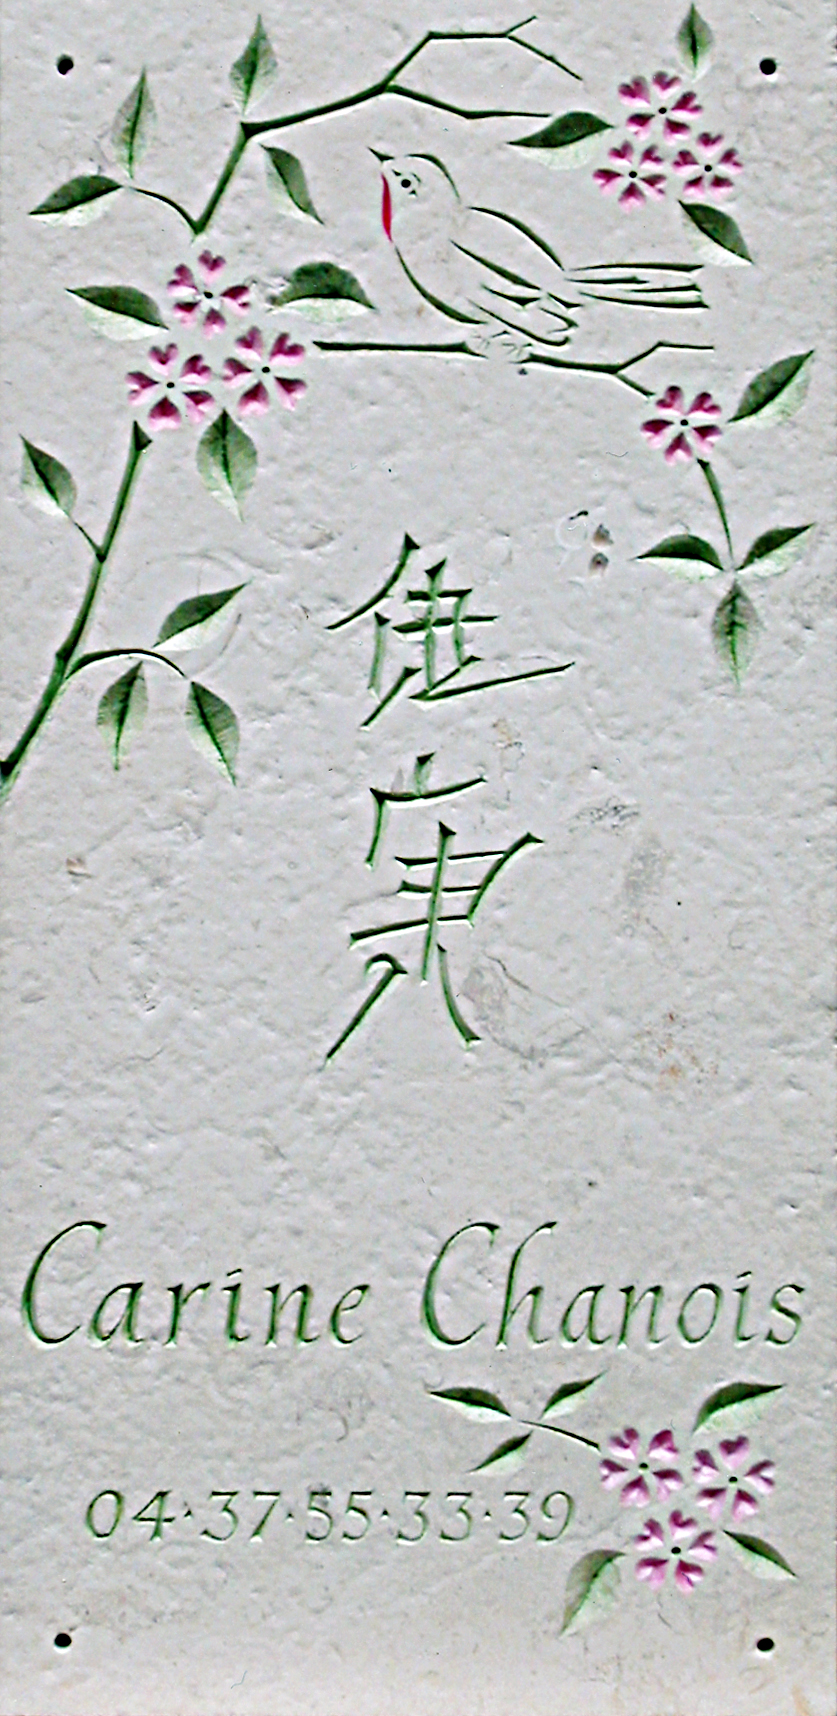 健康
Carine Chanois
04·37·55·33·39